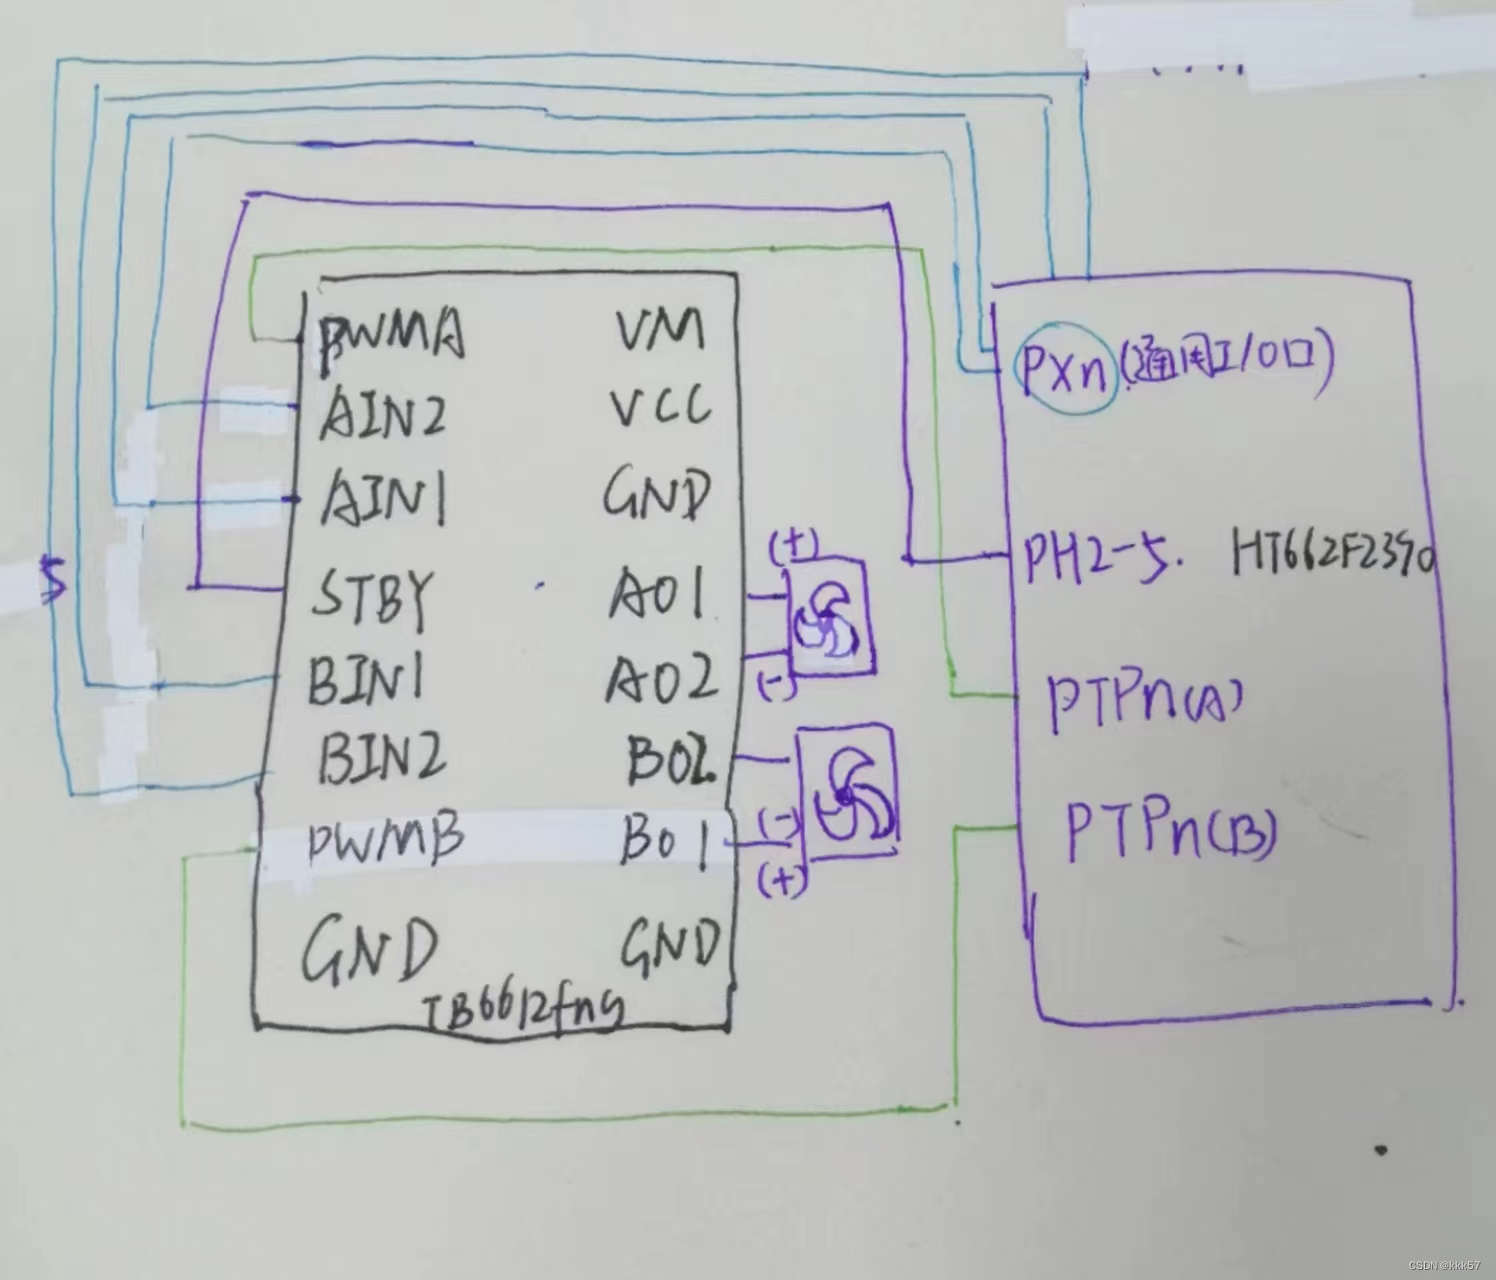 PWMA VM
AIN2 VCC
AIN1 GND
STBY AO1
BIN1 AO2
BIN2 BO2
PWMB BO1
GND GND
TB6612fng
(+)
(-)
(-)
(+)
5
PXn (通用I/O口)
PH2-5. HT662F2390
PTPn(A)
PTPn(B)
CSDN @kkk57